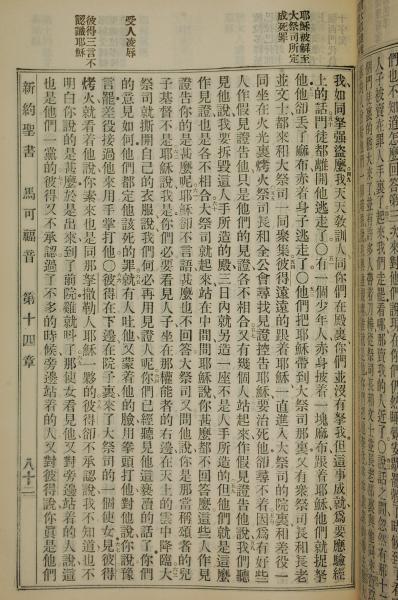 耶穌被解至
大祭司所定
成死罪
受人凌辱
彼得三言不
認識耶穌
我如同拏强盜麼我天天敎訓人同你們在殿裏你們並沒有拏我但這事成就爲要應驗經
上的話門徒都離開他逃走了○有一個少年人赤身披着一塊麻布跟着耶穌他們就捉拏
他他卻丟了麻布赤着身子逃走了○他們把耶穌帶到大祭司那裏又有衆祭司長和長老
並文士都來和大祭司一同聚集彼得遠遠的跟着耶穌一直進入大祭司的院裏和差役一
同坐在火光裏烤火祭司長和全公會尋找見證控告耶穌要治死他卻尋不着因爲有好些
人作假見證告他只是他們的見證各不相合又有幾個人站起來作假見證告他說我們聽
見他說我要拆毀這人手所造的殿三日內就另造一座不是人手所造的但他們就是這麼
作見證也是各不相合大祭司就起來站在中間問耶穌說你甚麼都不回答麼這些人作見
證告你的是甚麼呢耶穌卻不言語甚麼也不回答大祭司又問他說你是那當稱頌者的兒
子基督不是耶穌說我是你們必要看見人子坐在那權能者的右邊在天上的雲中降臨大
祭司就撕開自己的衣服說我們何必再用見證人呢你們已經聽見他這褻瀆的話了你們
的意見如何他們都定他該死的罪就有人吐他又蒙着他的臉用拳頭打他對他說你說豫
言罷差役接過他來用手掌打他○彼得在下邊在院子裏來了大祭司的一個使女見彼得
烤火就看着他說你素來也是同那拏撒勒人耶穌一夥的彼得卻不承認說我不知道也不
明白你說的是甚麼於是出來到了前院雞就呌了那使女看見他又對旁邊站着的人說這
也是他們一黨的彼得又不承認過了不多的時候旁邊站着的人又對彼得說你眞是他們
新約聖書 馬可福音 第十四章